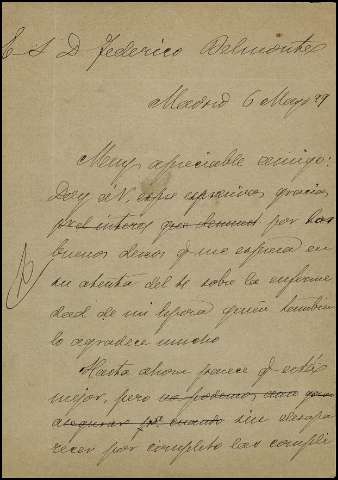 E S D Federico Belmonte
Madrid 6 Mayo 79
Muy apreciable amigo:
Doy á V. expresivas gracias
por el interes que por los
buenos deseos q. me expresa en
su atenta del 4 sobre la enferme
dad de mi esposa quien tambien
lo agradece mucho
Hasta ahora parece q. está
mejor, pero no podemos aun
asegurar sin desapa
recer por completo las compli